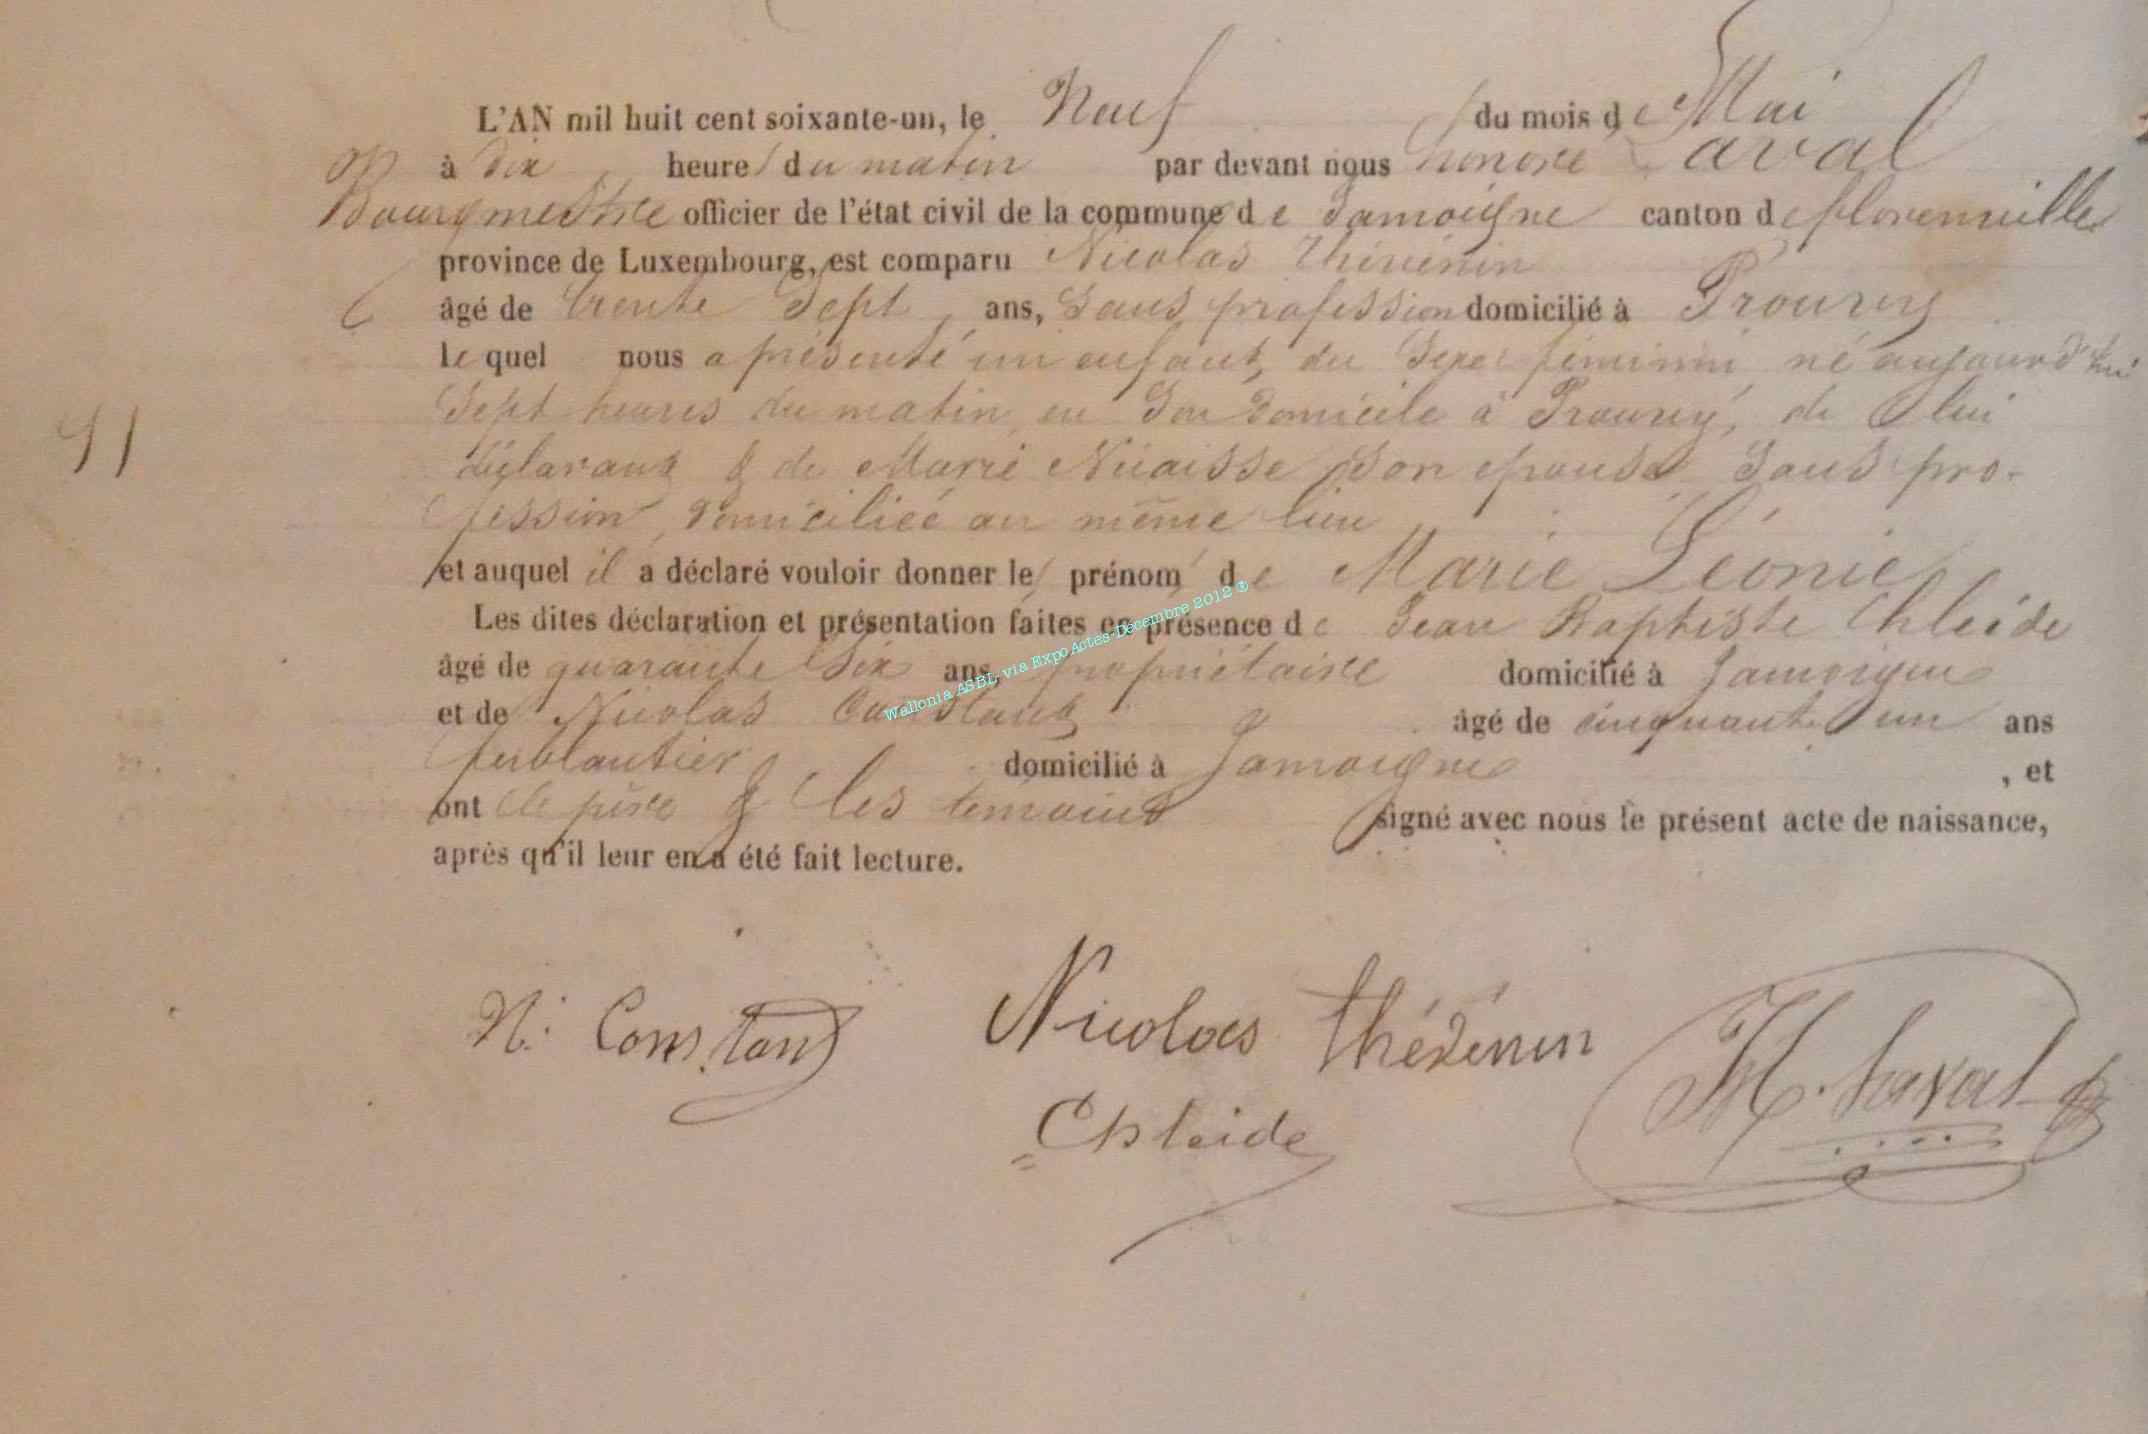 L'AN mil huit cent soixante-un, le Neuf du mois de Mai
à Dix heure du matin par devant nous honoré Laval
Bourgmestre officier de l'état civil de la commune de Jamoigne canton de florenville
province de Luxembourg, est comparu Nicolas Thévénin
âgé de trente Sept ans, Sans profession domicilié à Prouvy
le quel nous a présenté un enfant du Sexe féminin né aujourd'hui
Sept heures du matin, en Son domicile à Prouvy, de lui
déclarant & de Marie Nicaisse Son epouse Sans pro-
fession, domiciliée au même lieu
et auquel il a déclaré vouloir donner le prénom de Marie Léonie
Les dites déclaration et présentation faites en présence de Jean Baptiste Chleide
âgé de quarante Six ans, propriétaire domicilié à Jamoigne
et de Nicolas Constant âgé de cinquante un ans
ferblantier domicilié à Jamoigne , et
ont le père & les témoins signé avec nous le présent acte de naissance,
après qu'il leur en a été fait lecture.
51
Wallonia ASBL, via Expo Actes-Décembre 2012 ®
N. Constant Nicolas thévénin H. Laval
Chleide